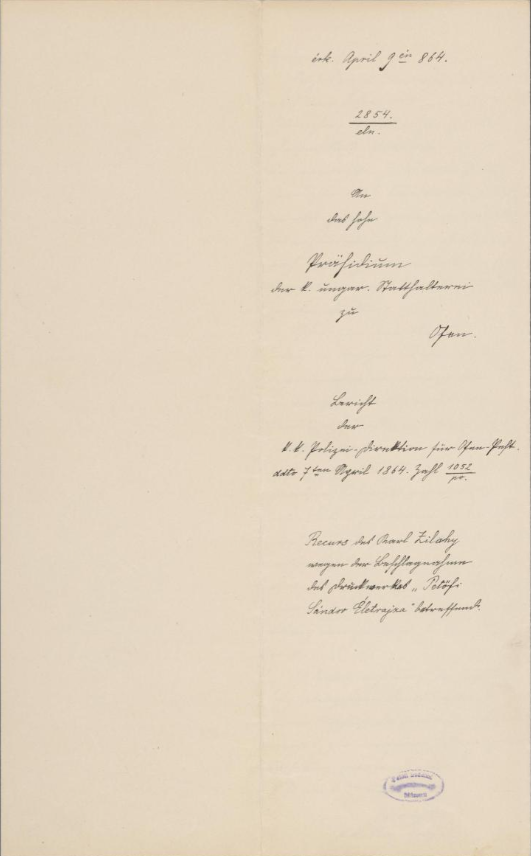 érk. April 9 én 864.
2854.
eln.
An
das hohe
Präsidium
der k. ungar. Statthalterei
zu
Ofen.
Bericht
der
k. k. Polizei-Direktion für Ofen-Pest.
ddto 7ten April 1864. Zahl 1052
pr.
Recurs des Carl Zilahy
wegen der Beschlagnahme
des Druckwerkes „Petőfi
Sándor Életrajza" betreffend.